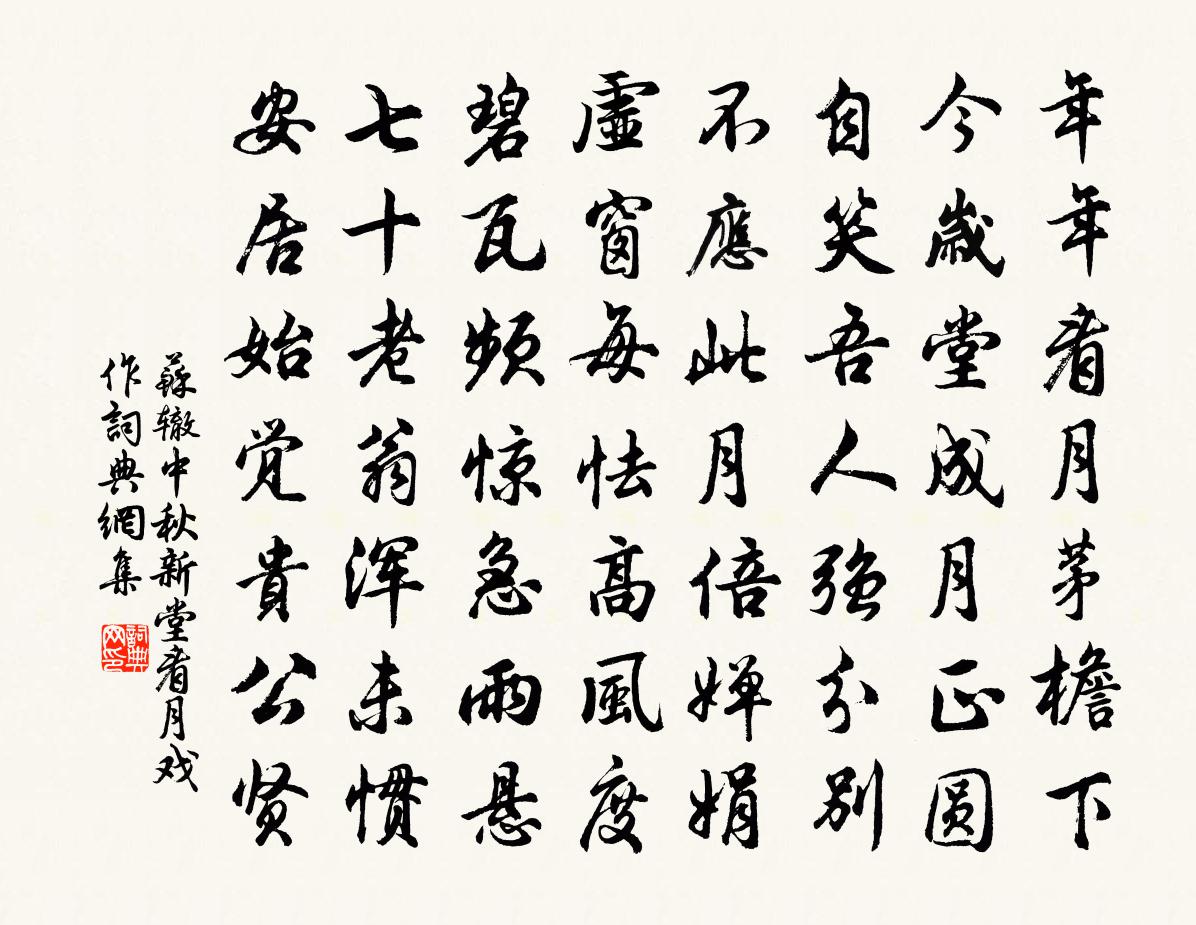 年年看月茅檐下
今歲堂成月正圓
自笑吾人強分別
不應此月倍婵娟
虛窗每怯高風度
碧瓦頻惊急雨悬
七十老翁浑未慣
安居始觉貴公贤
蘇辙中秋新堂看月戏
作詞典網集
詞典网印